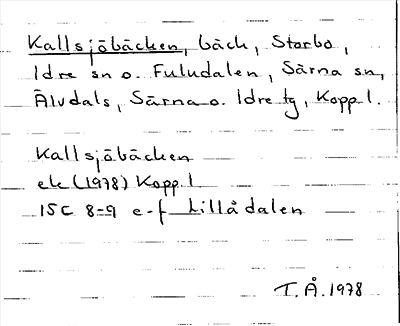 Kallsjöbäcken, bäck, Storbo,
Idre sn o. Fuludalen, Särna sn,
Älvdals, Särna o. Idre tg, Kopp. l.
Kallsjöbäcken
ek (1978) Kopp. l
15C 8-9 e-f Lillådalen
T.Å. 1978